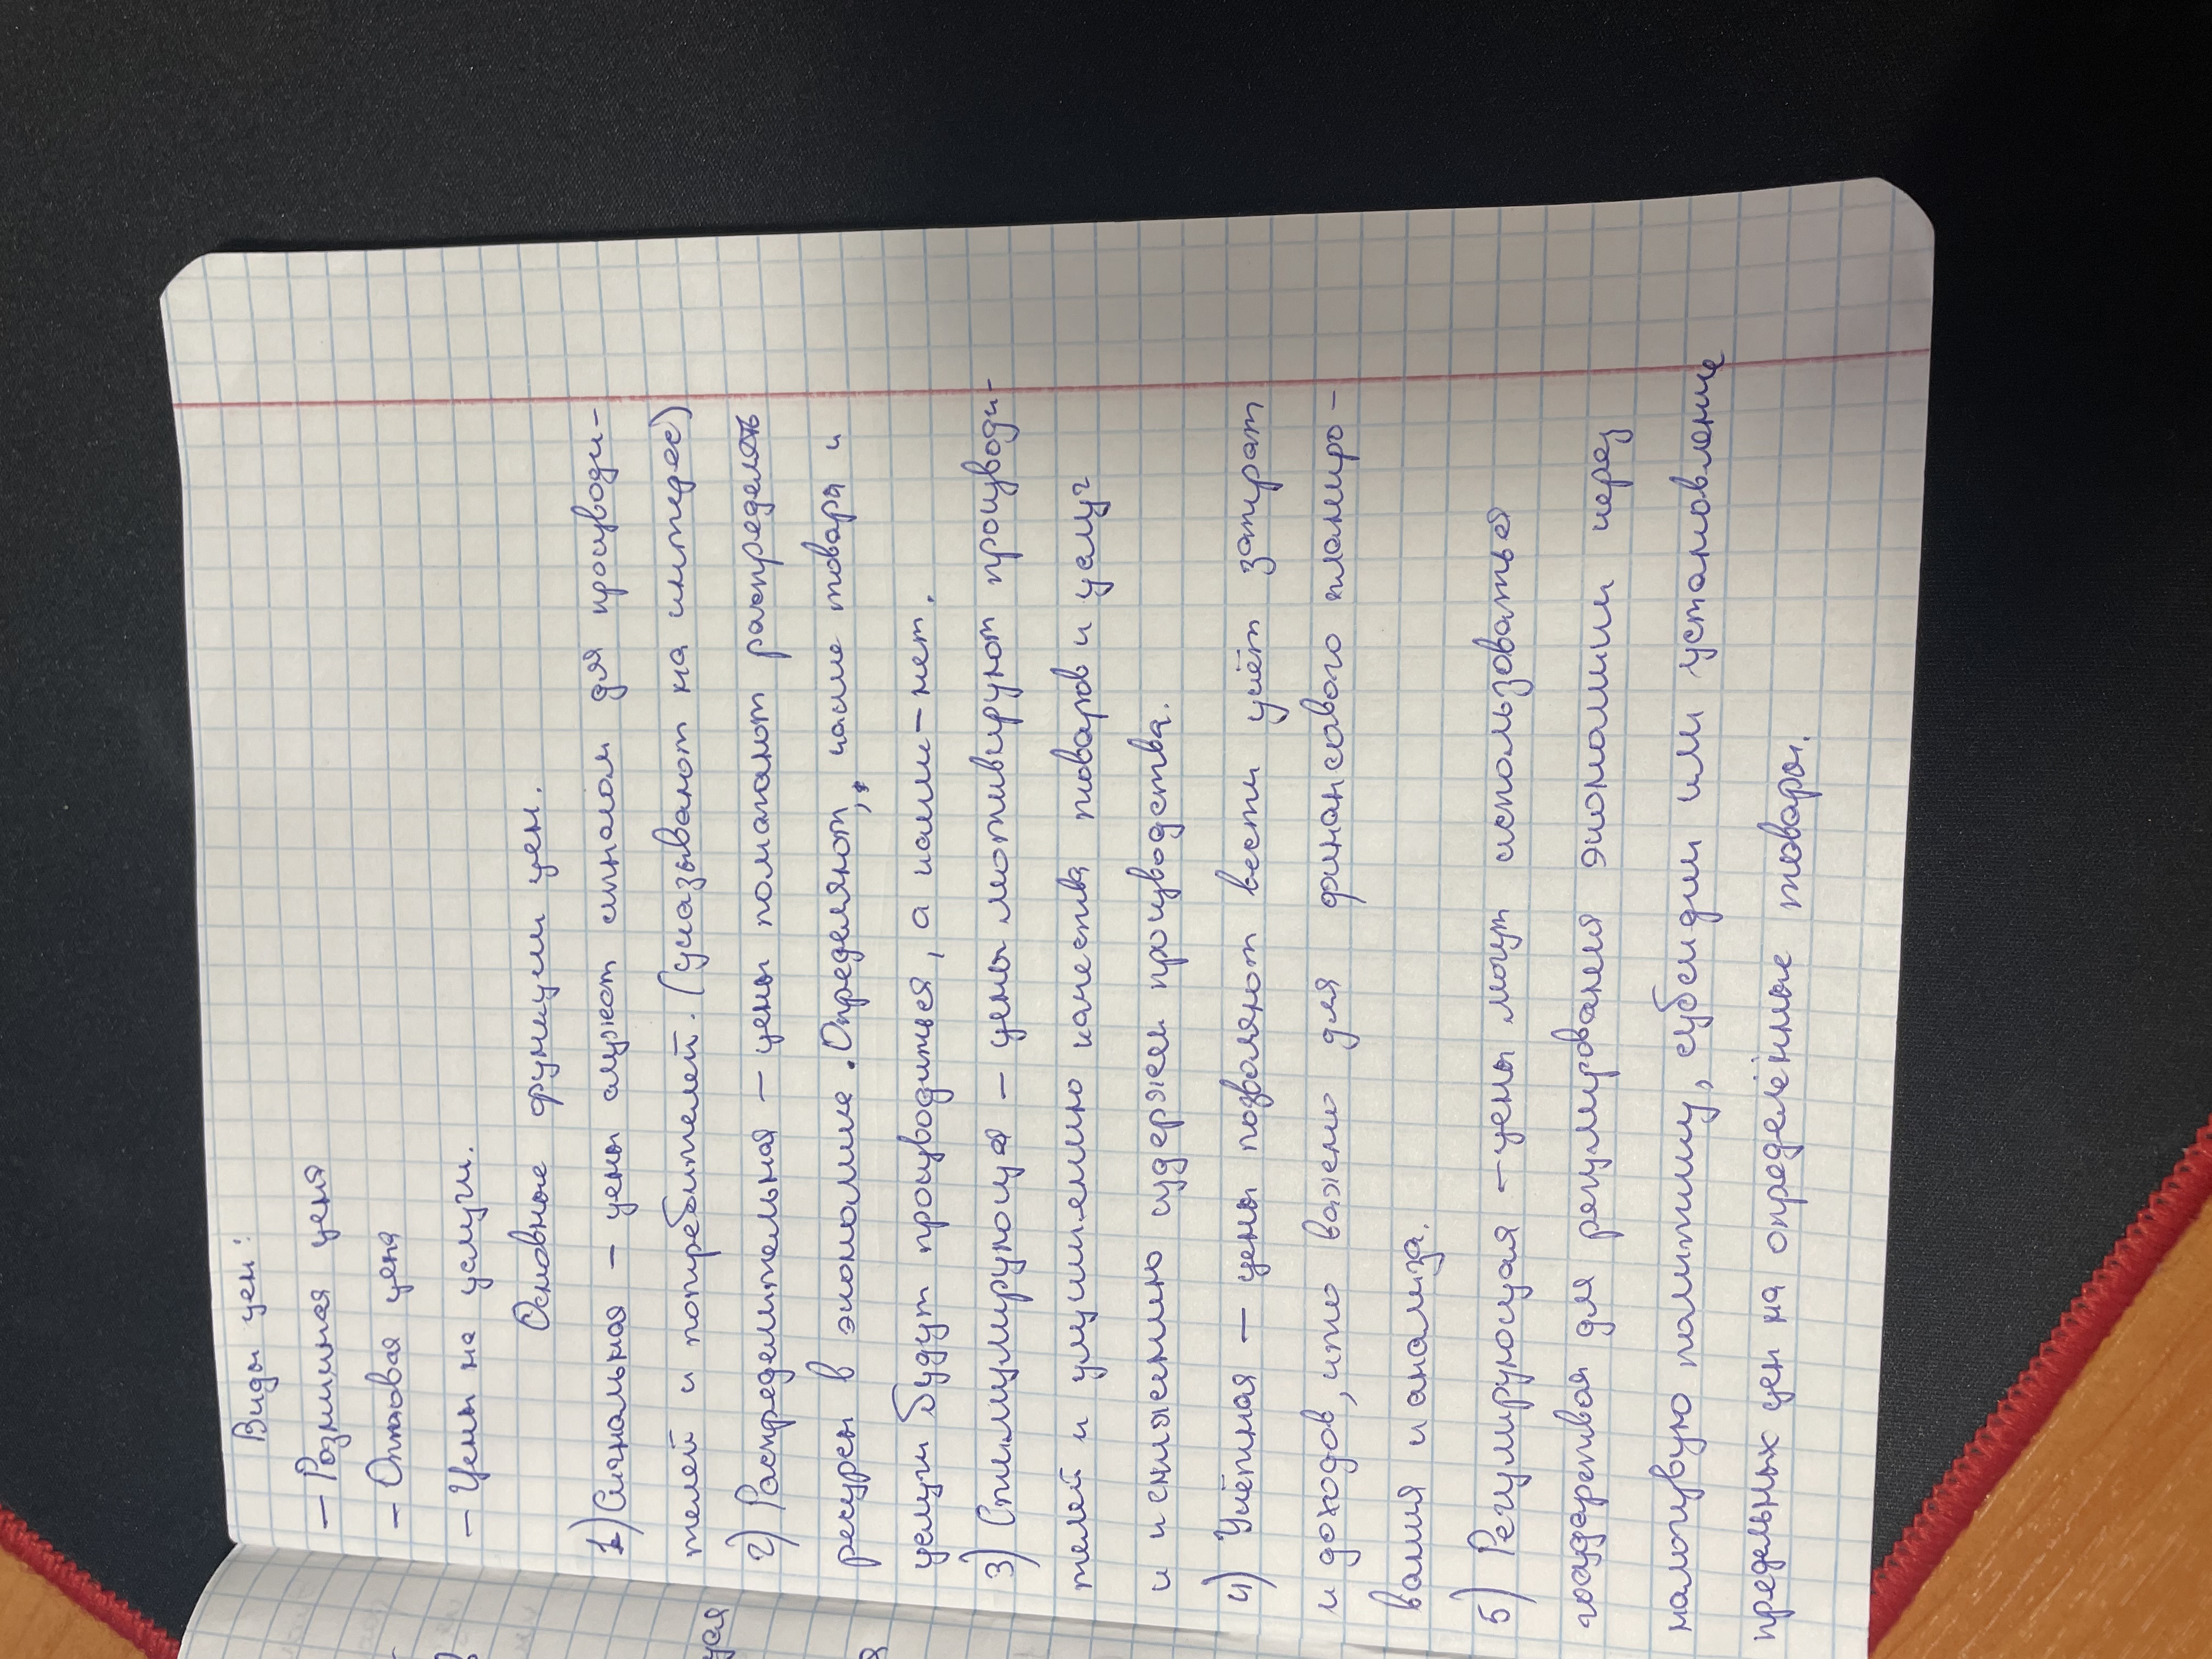 Виды цен:
– Розничная цена
– Оптовая цена
– Цены на услуги.
Основные функции цен.
1) Сигнальная – цены служест сигналом для производи-
телей и потребителей. (указывают на интерес)
2) Распределительная – цены помогают распределять
ресурсы в экономике. Определяют, какие товары и
услуги будут производиться, а какие – нет.
3) Стимулирующая – цены мотивируют производи-
телей и улучшению качества товаров и услуг
и и снижению издержек производства.
4) Учётная – цены позволяют вести учёт затрат
и доходов, что важно для финансового планиро-
вания и анализа.
5) Регулирующая – цены могут использоваться
государством для регулирования экономики через
налоговую политику, субсидии или установление
предельных цен на определённые товары.
ущая
я